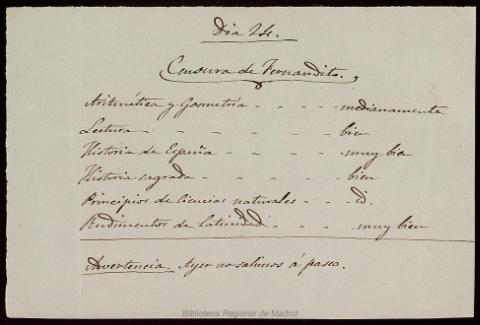 Dia 24.
Censura de Fernandito.
Aritmética y Geometría - - - - medianamente
Lectura - - - - - - bien
Historia de España - - - - muy bien
Historia sagrada - - - - - bien
Principios de ciencias naturales - - id.
Rudimentos de latinidad - - - muy bien
Advertencia. Ayer no salimos á paseo.
Biblioteca Regional de Madrid